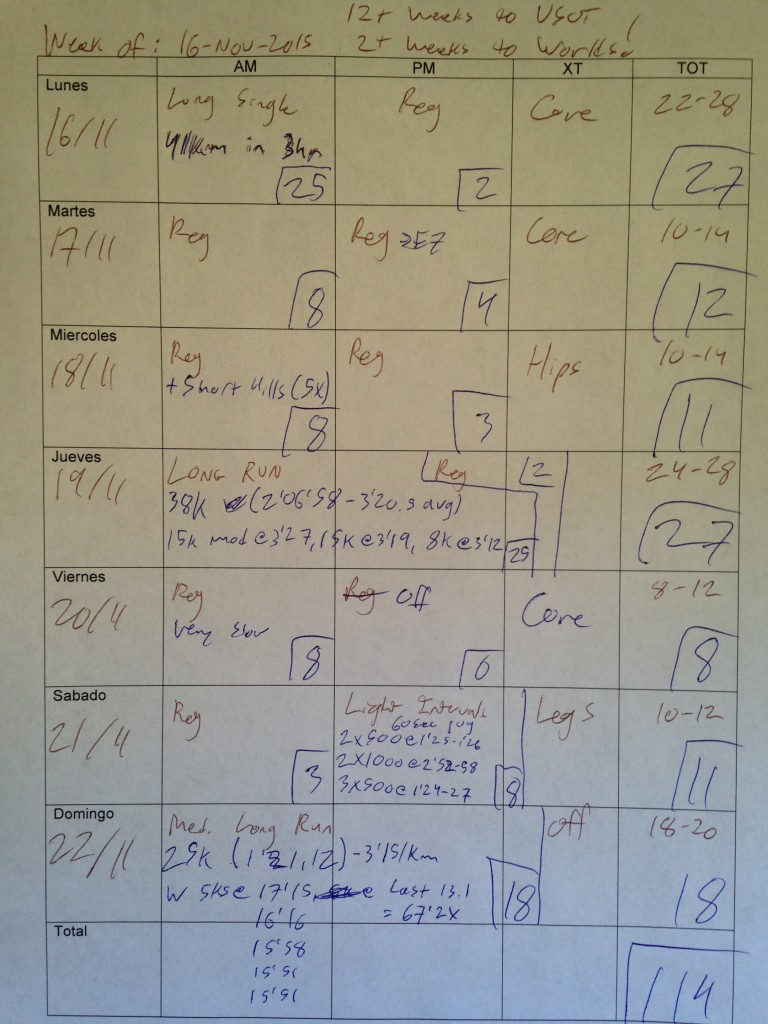 12+ weeks to USOT!
Week of: 16-Nov-2015 2+ weeks to Worlds!
AM PM XT TOT
Lunes
16/11 Long Single Reg Core 22-28
in 3hr
25 2 27
Martes
17/11 Reg Reg Core 10-14
8 4 12
Miercoles
18/11 Reg Reg Hips 10-14
+ Short Hills (5x)
8 3 11
Jueves
19/11 LONG RUN Reg 2 24-28
38K (2'06'58 - 3'20.5 avg)
15k mod @ 3'27, 15k @ 3'19, 8k @ 3'12 25 27
Viernes
20/11 Reg Reg Off Core 8-12
Very slow
8 0 8
Sabado
21/11 Reg Light Intervals Legs 10-12
60sec jog
2x500 @ 1'25-1'26
2x1000 @ 2'52-58
3x500 @ 1'24-27
3 8 11
Domingo
22/11 Med. Long Run Off 18-20
25k (1'21,12) - 3'15/km
w 5ks @ 17'15, Last 13.1
16'16 = 67'2X
15'58
15'51
15'51
18 18
Total
114